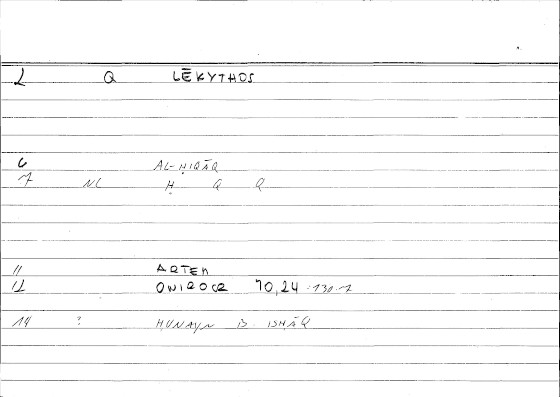 2 Q LĒKYTHOS
6 AL-ḤIQĀQ
7 NL Ḥ Q Q
11 ARTEM
12 ONIROCR 70,24 = 130-1
14 ? ḤUNAYN B. ISḤĀQ